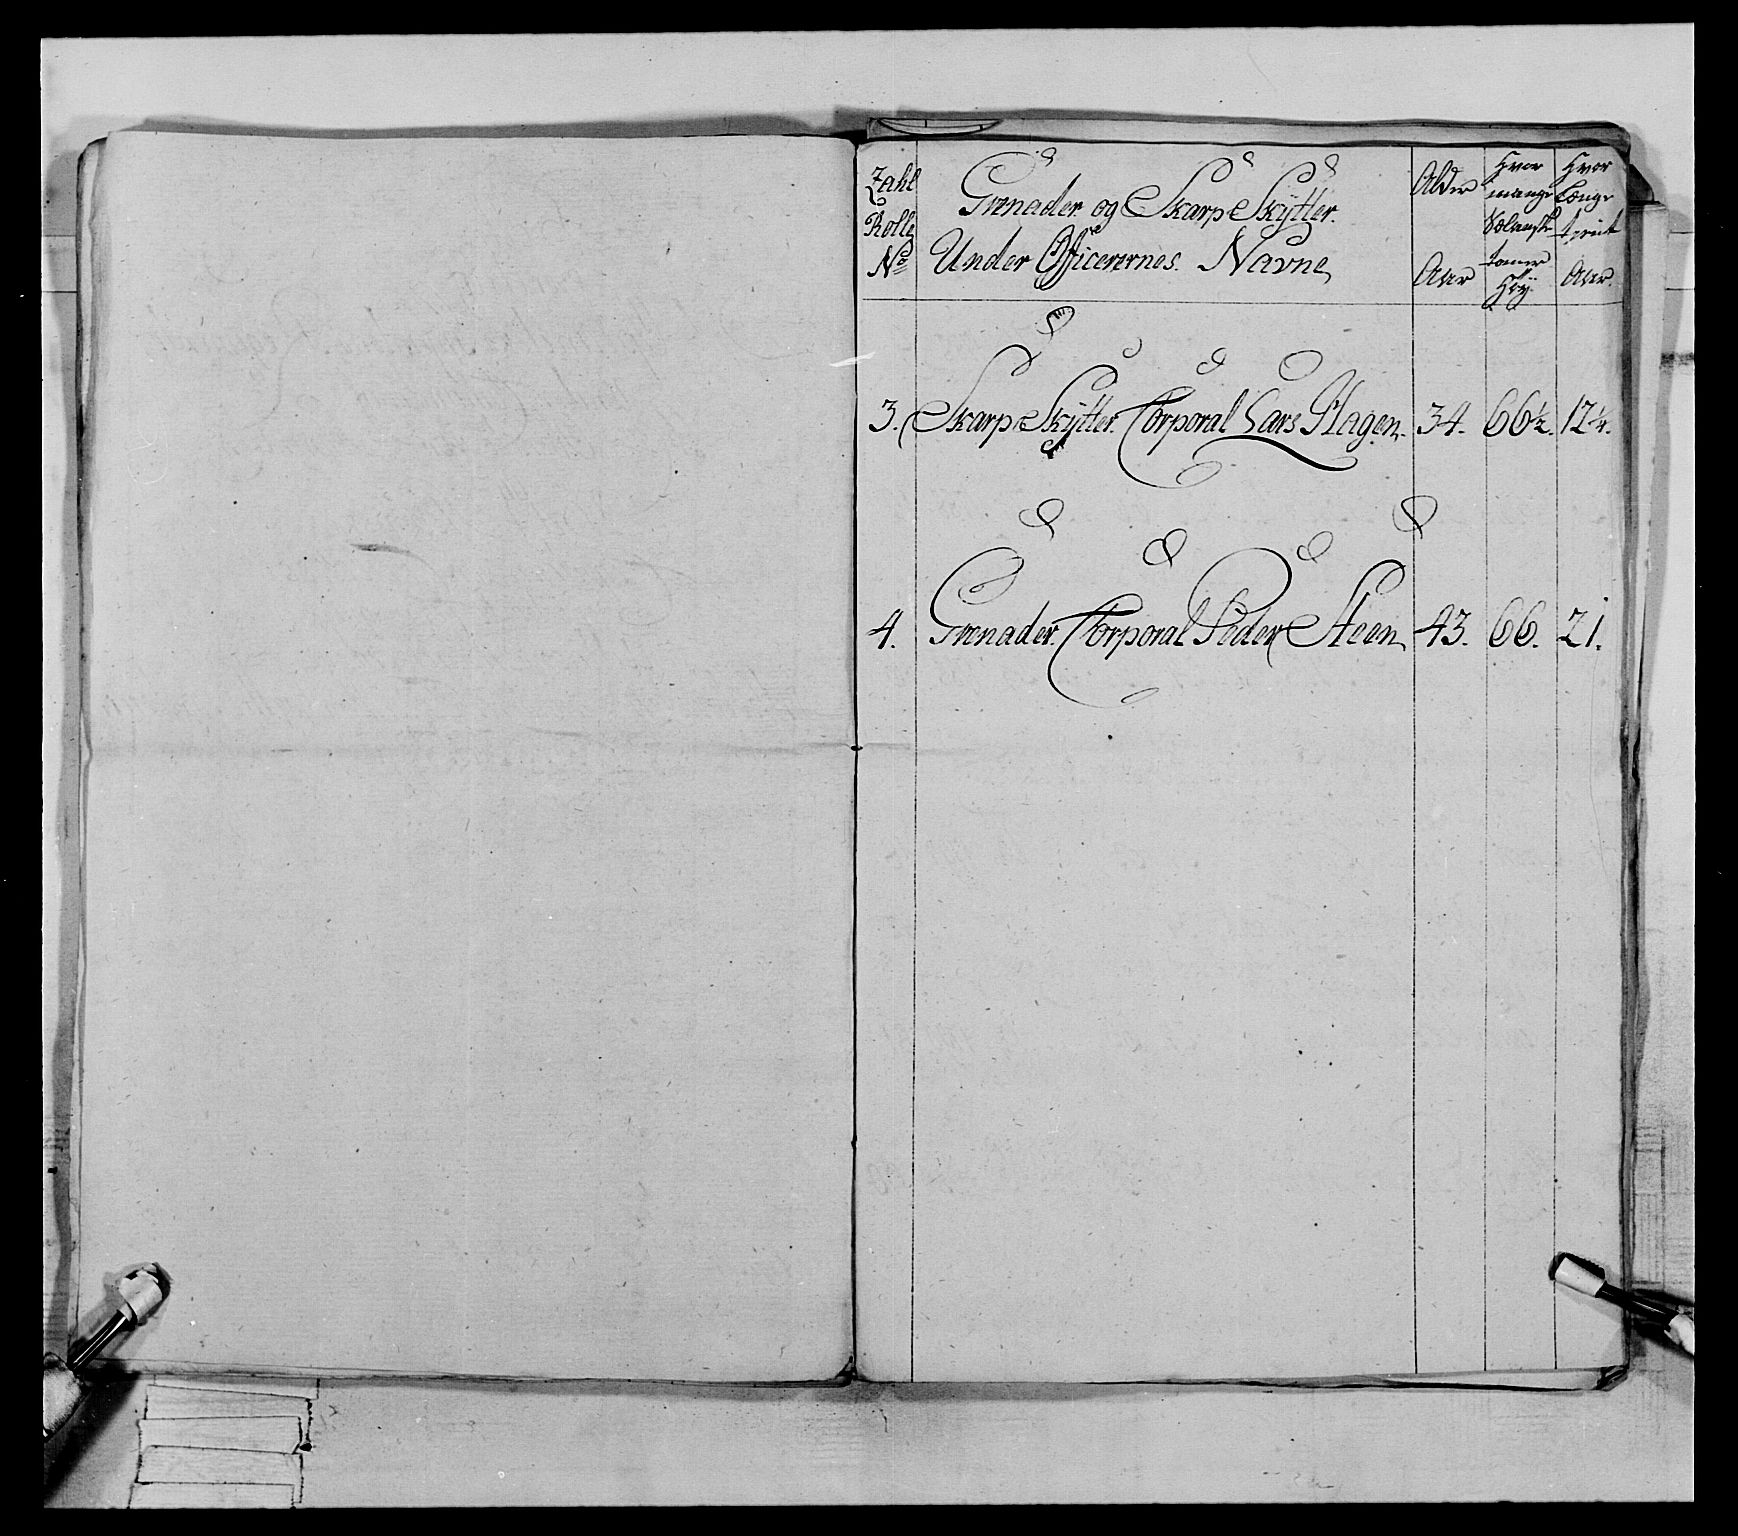 Zahl
Rolle
No
Grenader og Skarp Skÿtter.
Under Officerernes. Navne
Alder
Aar
Hvor
mange
tomer
Høÿ.
Hvor
Længe
tient
Aar.
3. Skarp Skÿtter. Corporal Lars Hagen. 34. 66½. 12¼.
4. Grenader. Corporal Peder Steen 43. 66. 21.